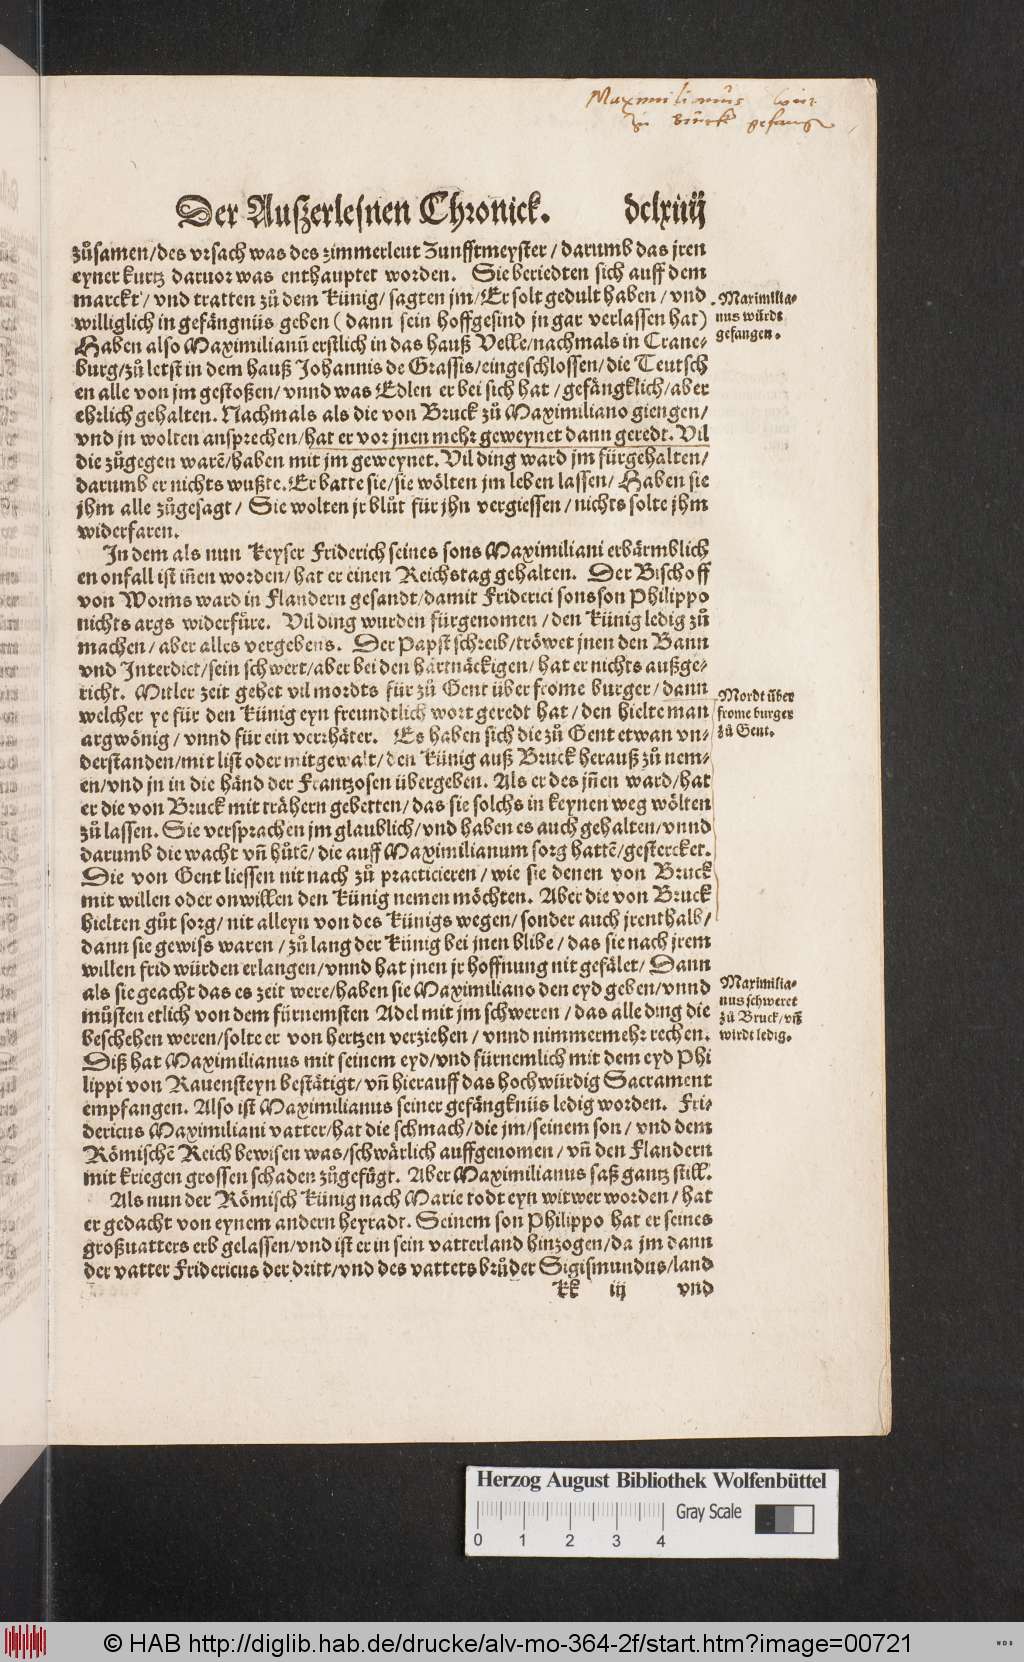 Maximilianus wirt
zu Bruck gefang
Der Auszerlesnen Chronick. dclxiiij
zůsamen/des vrsach was des zimmerleut Zunfftmeyster/darumb das jren
eyner kurtz daruor was enthauptet worden. Sie beriedten sich auff dem
marckt/vnd tratten zů dem Künig/sagten jm/Er solt gedult haben/vnd
williglich in gefängnüs geben (dann sein hoffgesind jn gar verlassen hat)
Haben also Maximilianū erstlich in das hauß Velle/nachmals in Crane-
burg/zů letst in dem hauß Johannis de Grassis/eingeschlossen/die Teutsch
en alle von jm gestoßen/vnnd was Edlen er bei sich hat/gefängklich/aber
ehrlich gehalten. Nachmals als die von Bruck zů Maximiliano giengen/
vnd jn wolten ansprechen/hat er vor jnen mehr geweynet dann geredt. Vil
die zůgegen warē/haben mit jm geweynet. Vil ding ward jm fürgehalten/
darumb er nichts wußte. Er batte sie/sie wölten jm leben lassen/Haben sie
jhm alle zůgesagt/Sie wolten jr blůt für jhn vergiessen/nichts solte jhm
widerfaren.
Maximilia-
nus würdt
gefangen.
In dem als nun Keyser Friderich seines sons Maximiliani erbärmblich
en onfall ist iñen worden/hat er einen Reichstag gehalten. Der Bischoff
von Worms ward in Flandern gesandt/damit Friderici sonsson Philippo
nichts args widerfůre. Vil ding wurden fürgenomen/den Künig ledig zů
machen/aber alles vergebens. Der Papst schreib/tröwet jnen den Bann
vnd Interdict/sein schwert/aber bei den hartnäckigen/hat er nichts außge-
richt. Mitler zeit gehet vil mordts für zů Gent über frome burger/dann
welcher ye für den Künig eyn freundtlich wort geredt hat/den hielte man
argwönig/vnnd für ein verrhäter. Es haben sich die zů Gent etwan vn-
derstanden/mit list oder mit gewalt/den Künig auß Bruck herauß zů nem-
en/vnd jn in die händ der Frantzosen übergeben. Als er des jñen ward/hat
er die von Bruck mit trähern gebetten/das sie solchs in keynen weg wölten
zů lassen. Sie versprachen jm glaublich/vnd haben es auch gehalten/vnnd
darumb die wacht vñ hůtē/die auff Maximilianum sorg hattē/gestercket.
Die von Gent liessen nit nach zů practicieren/wie sie denen von Bruck
mit willen oder onwillen den Künig nemen möchten. Aber die von Bruck
hielten gůt sorg/nit alleyn von des Künigs wegen/sonder auch jrenthalb/
dann sie gewiss waren/zů lang der Künig bei jnen blibe/das sie nach jrem
willen frid würden erlangen/vnnd hat jnen jr hoffnung nit gefälet/Dann
als sie geacht das es zeit were/haben sie Maximiliano den eyd geben/vnnd
můsten etlich von dem fürnemsten Adel mit jm schweren/das alle ding die
beschehen weren/solte er von hertzen verziehen/vnnd nimmermehr rechen.
Diß hat Maximilianus mit seinem eyd/vnd fürnemlich mit dem eyd Phi
lippi von Rauensteyn bestätigt/vñ hierauff das hochwürdig Sacrament
empfangen. Also ist Maximilianus seiner gefängknüs ledig worden. Fri-
dericus Maximiliani vatter/hat die schmach/die jm/seinem son/vnd dem
Römischē Reich bewisen was/schwärlich auffgenomen/vñ den Flandern
mit kriegen grossen schaden zůgefügt. Aber Maximilianus saß gantz still.
Mordt über
frome burger
zů Gent.
Maximilia-
nus schweret
zů Bruck/vñ
wirdt ledig.
Als nun der Römisch Künig nach Marie todt eyn witwer worden/hat
er gedacht von eynem andern heyradt. Seinem son Philippo hat er seines
großuatters erb gelassen/vnd ist er in sein vatterland hinzogen/da jm dann
der vatter Fridericus der dritt/vnd des vattets brůder Sigismundus/land
kk iij vnd
Herzog August Bibliothek Wolfenbüttel
Gray Scale
0 1 2 3 4
© HAB http://diglib.hab.de/drucke/alv-mo-364-2f/start.htm?image=00721